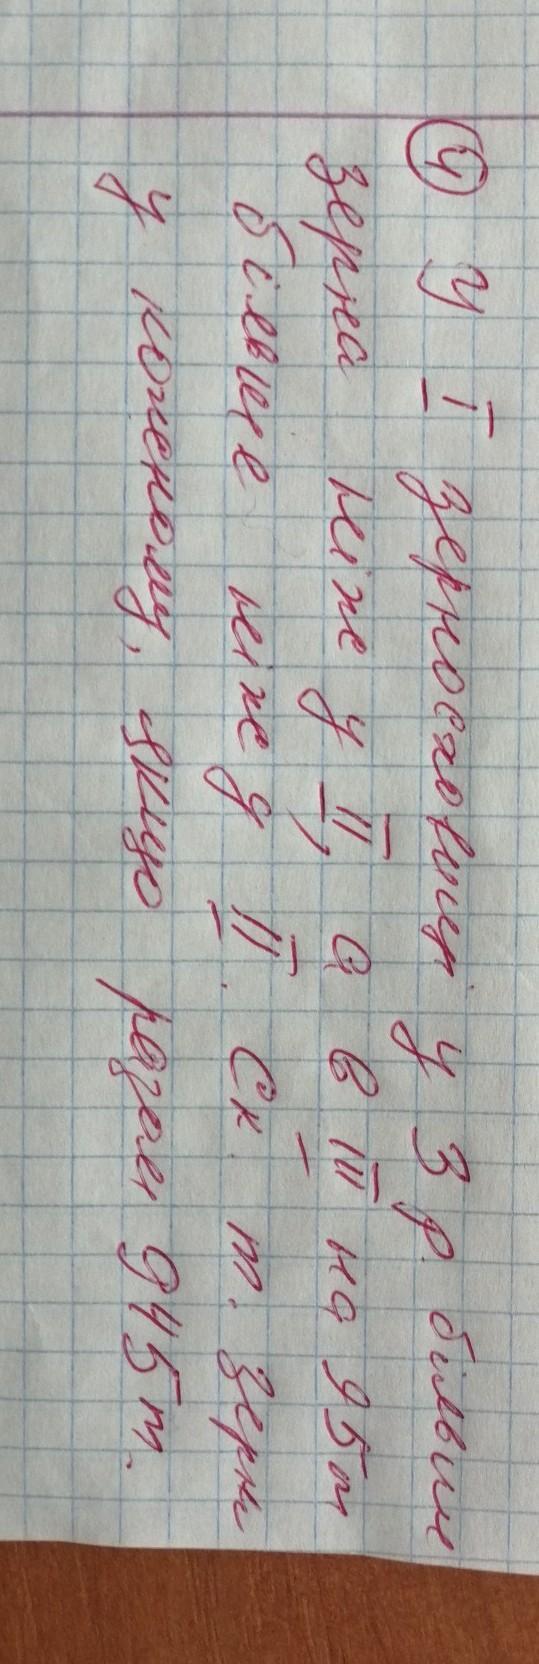 ④ У I зерносховищі у 3 р. більше
зерна ніж у II, а в III на 95т
більше ніж у II. Ск. т. зерн
у кожному, якщо разом 945т.